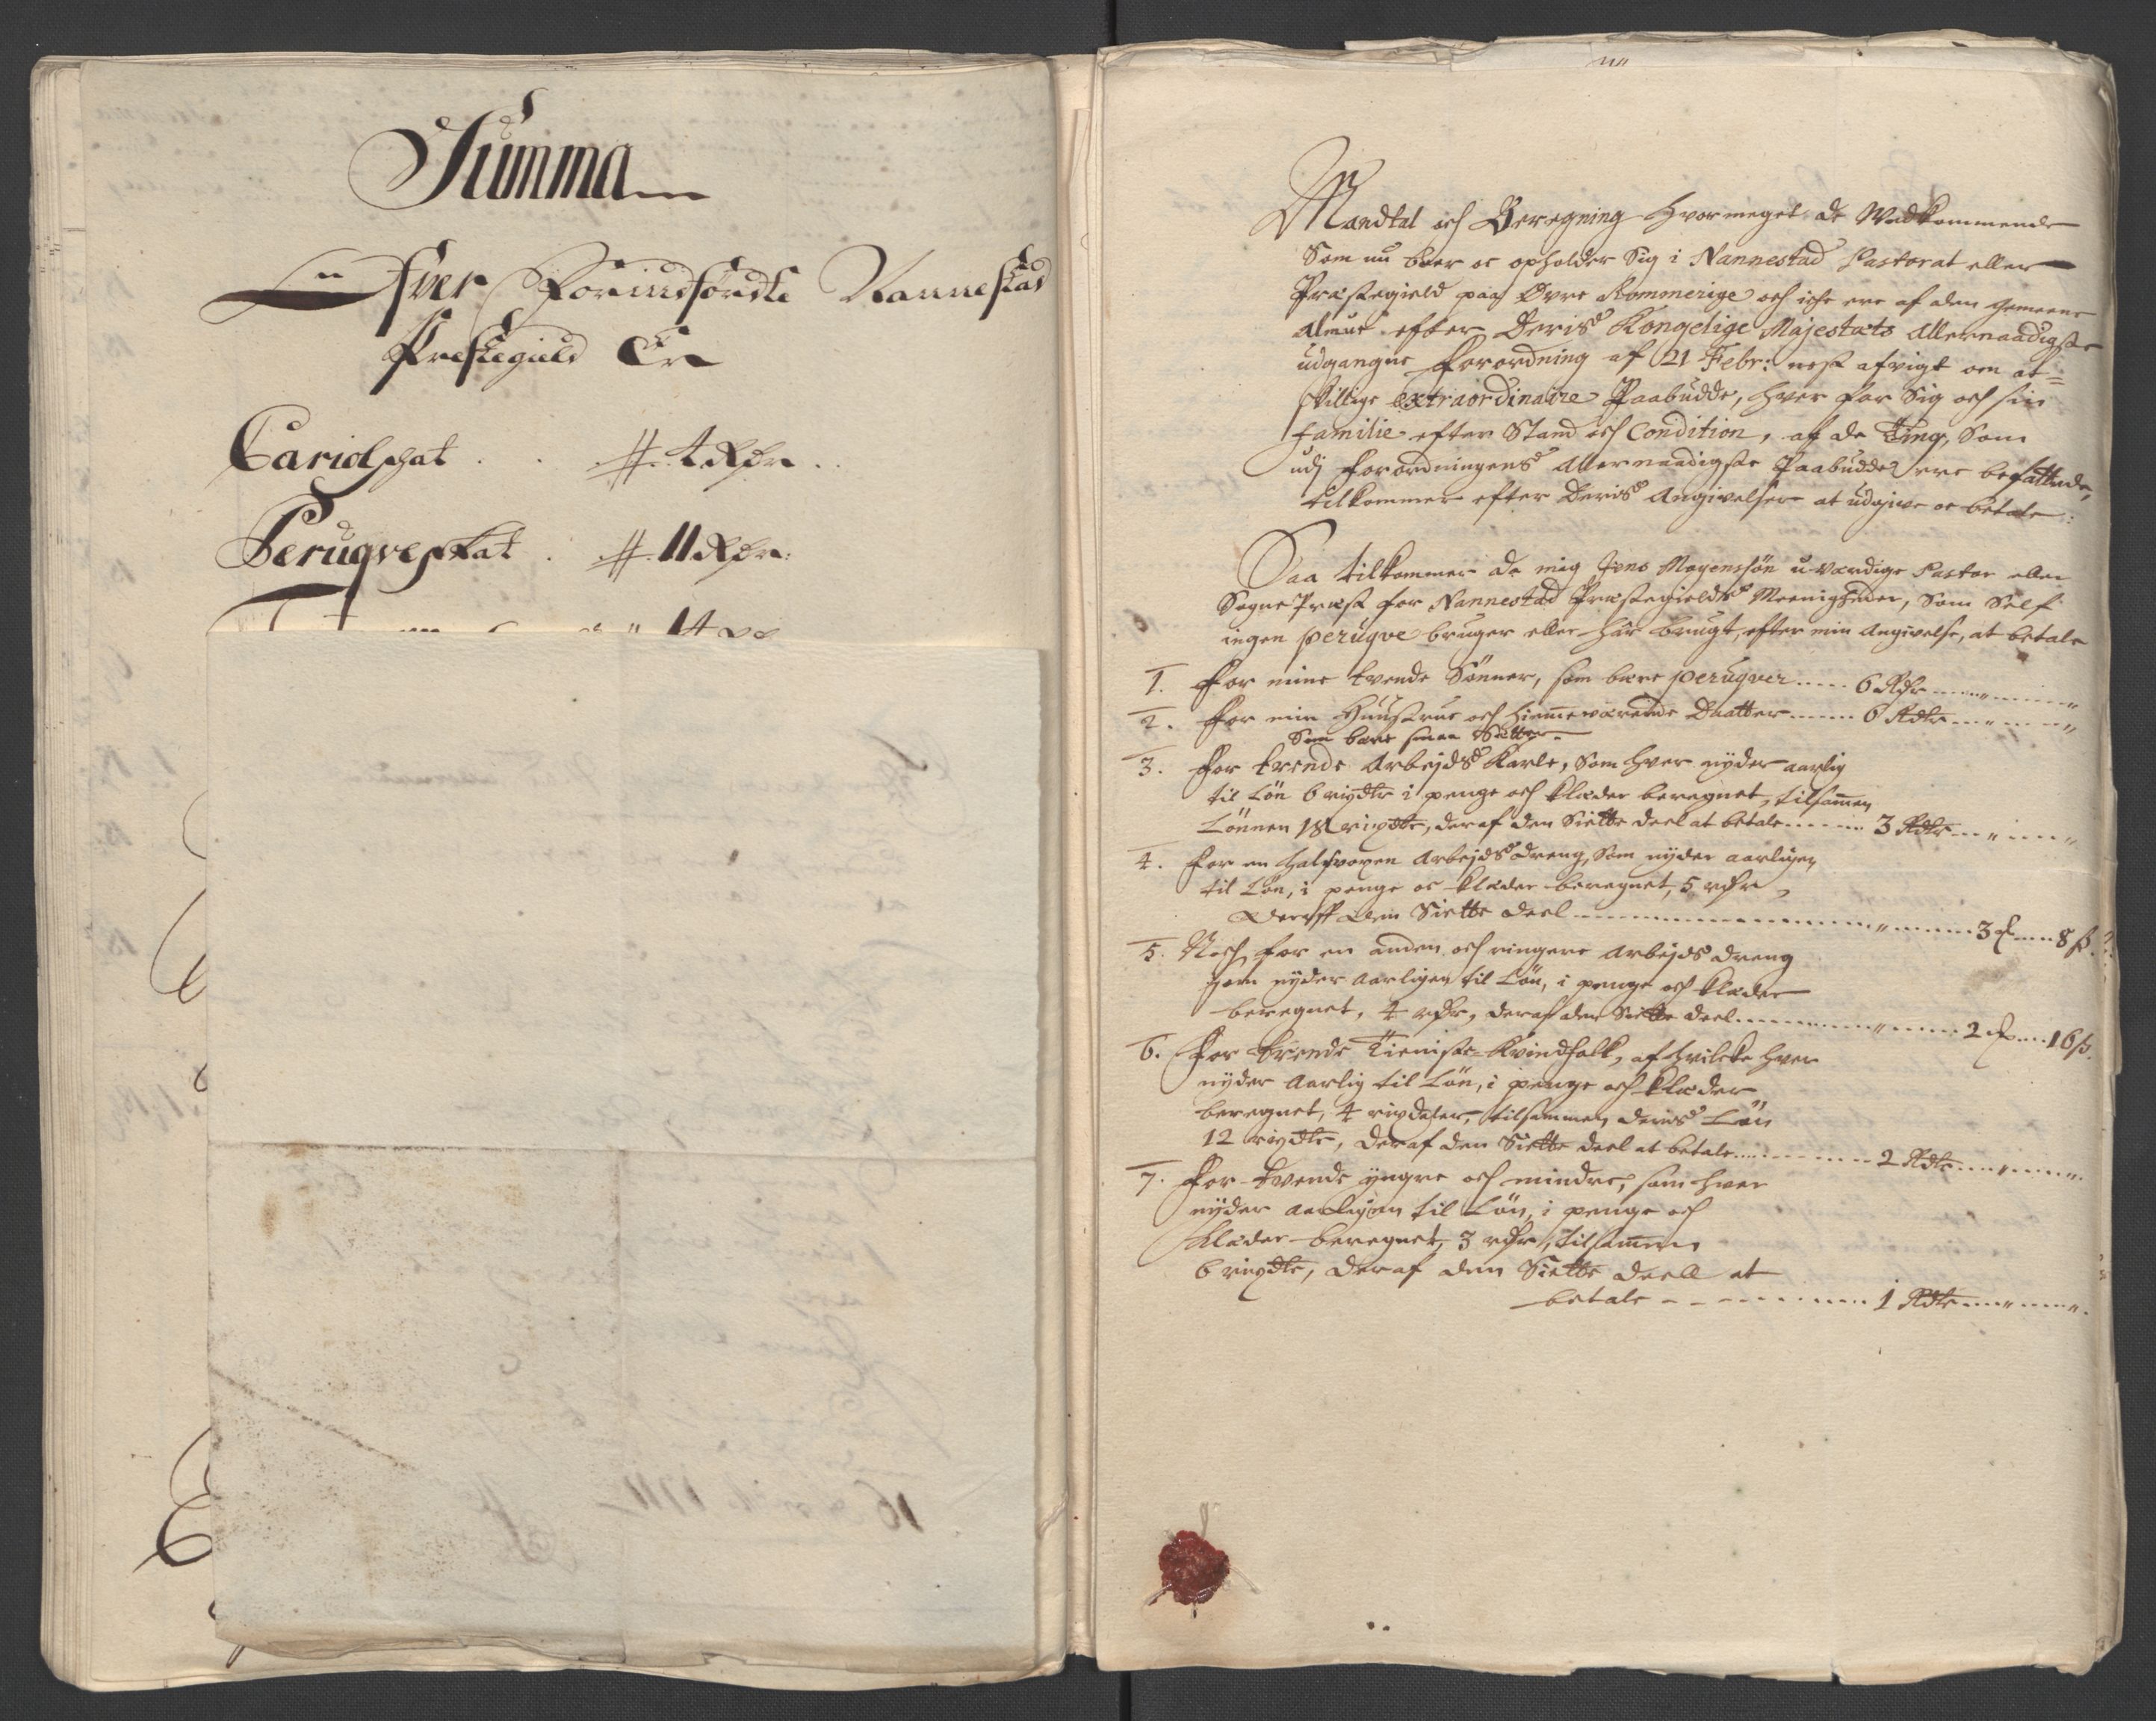 Summa
Ofver Forindførdte Nannestad
Prestegield Er
Cariolschat . . # 4 Rdr . .
Peruqveskat . # 11 Rdr:
Mandtal och Beregning hvormeget de Wedkommende
Som nu boer oc opholder Sig i Nannestad Pastorat eller
Præstegield paa Øvre Rommerige och iche ere af den gemeene
Almue efter Deris Kongelige Majestæts Allernaadigste
udgangne Forordning af 21 Febr: nest afvigt om at=
skillige extraordinaire Paabudde, hver for Sig och sin
Familie efter Stand och Condition, af de Ting, Som
udj Forordningens Allernaadigste Paabudde ere befattede,
tilkommer efter Deris Angivelser at udgive oc betale:
Saa tilkommer da mig Jens Mogenssøn u-værdige Pastor eller
Sogne Præst for Nannestad Præstegields Meenigheder, Som Self
ingen peruqve bruger eller har brugt, efter min Angivelse, at betale
1. For mine tvende Sønner, som bære peruqver ..... 6 Rdr ..... " ..... "
2. For min Hustrue och hiemmeværende Daatter ...... 6 Rdr .... " .... "
Som bære smaa Setter.
3. For trende Arbejds Karle, Som hver nyder aarlig
til Løn 6 rixdlr i penge och klæder beregnet, tilsammen
Lønnen 18 rixdlr, deraf den Siette deel at betale ...... 3 Rdlr .... " .... "
4. For en halfvoxen Arbejds dreng, Som nyder aarligen
til Løn, i penge oc klæder beregnet, 5 rdr,
Deraff den Siette deel .......... " ....... 3 ℔ .... 8 ß.
5. Noch for en anden och ringere Arbejds dreng
som nyder Aarligen til Løn, i penge och klæder
beregnet, 4 rdr, deraf den Siette deel .......... " ...... 2 ℔ .... 16 ß.
6. For trende Tieniste-Kvindfolk, af hvilcke hver
nyder Aarlig til Løn, i penge och klæder
beregnet, 4 rixdaler, tilsammen deris Løn
12 rixdlr, deraf den Siette deel at betale .......... 2 Rdlr .... " .... "
7. For tvende yngre och mindre, som hver
nyder Aarligen til Løn, i penge och
klæder beregnet, 3 rdr, tilsammen
6 rixdlr, deraf den Siette deell at
betale .......... 1 Rdlr .... " .... "